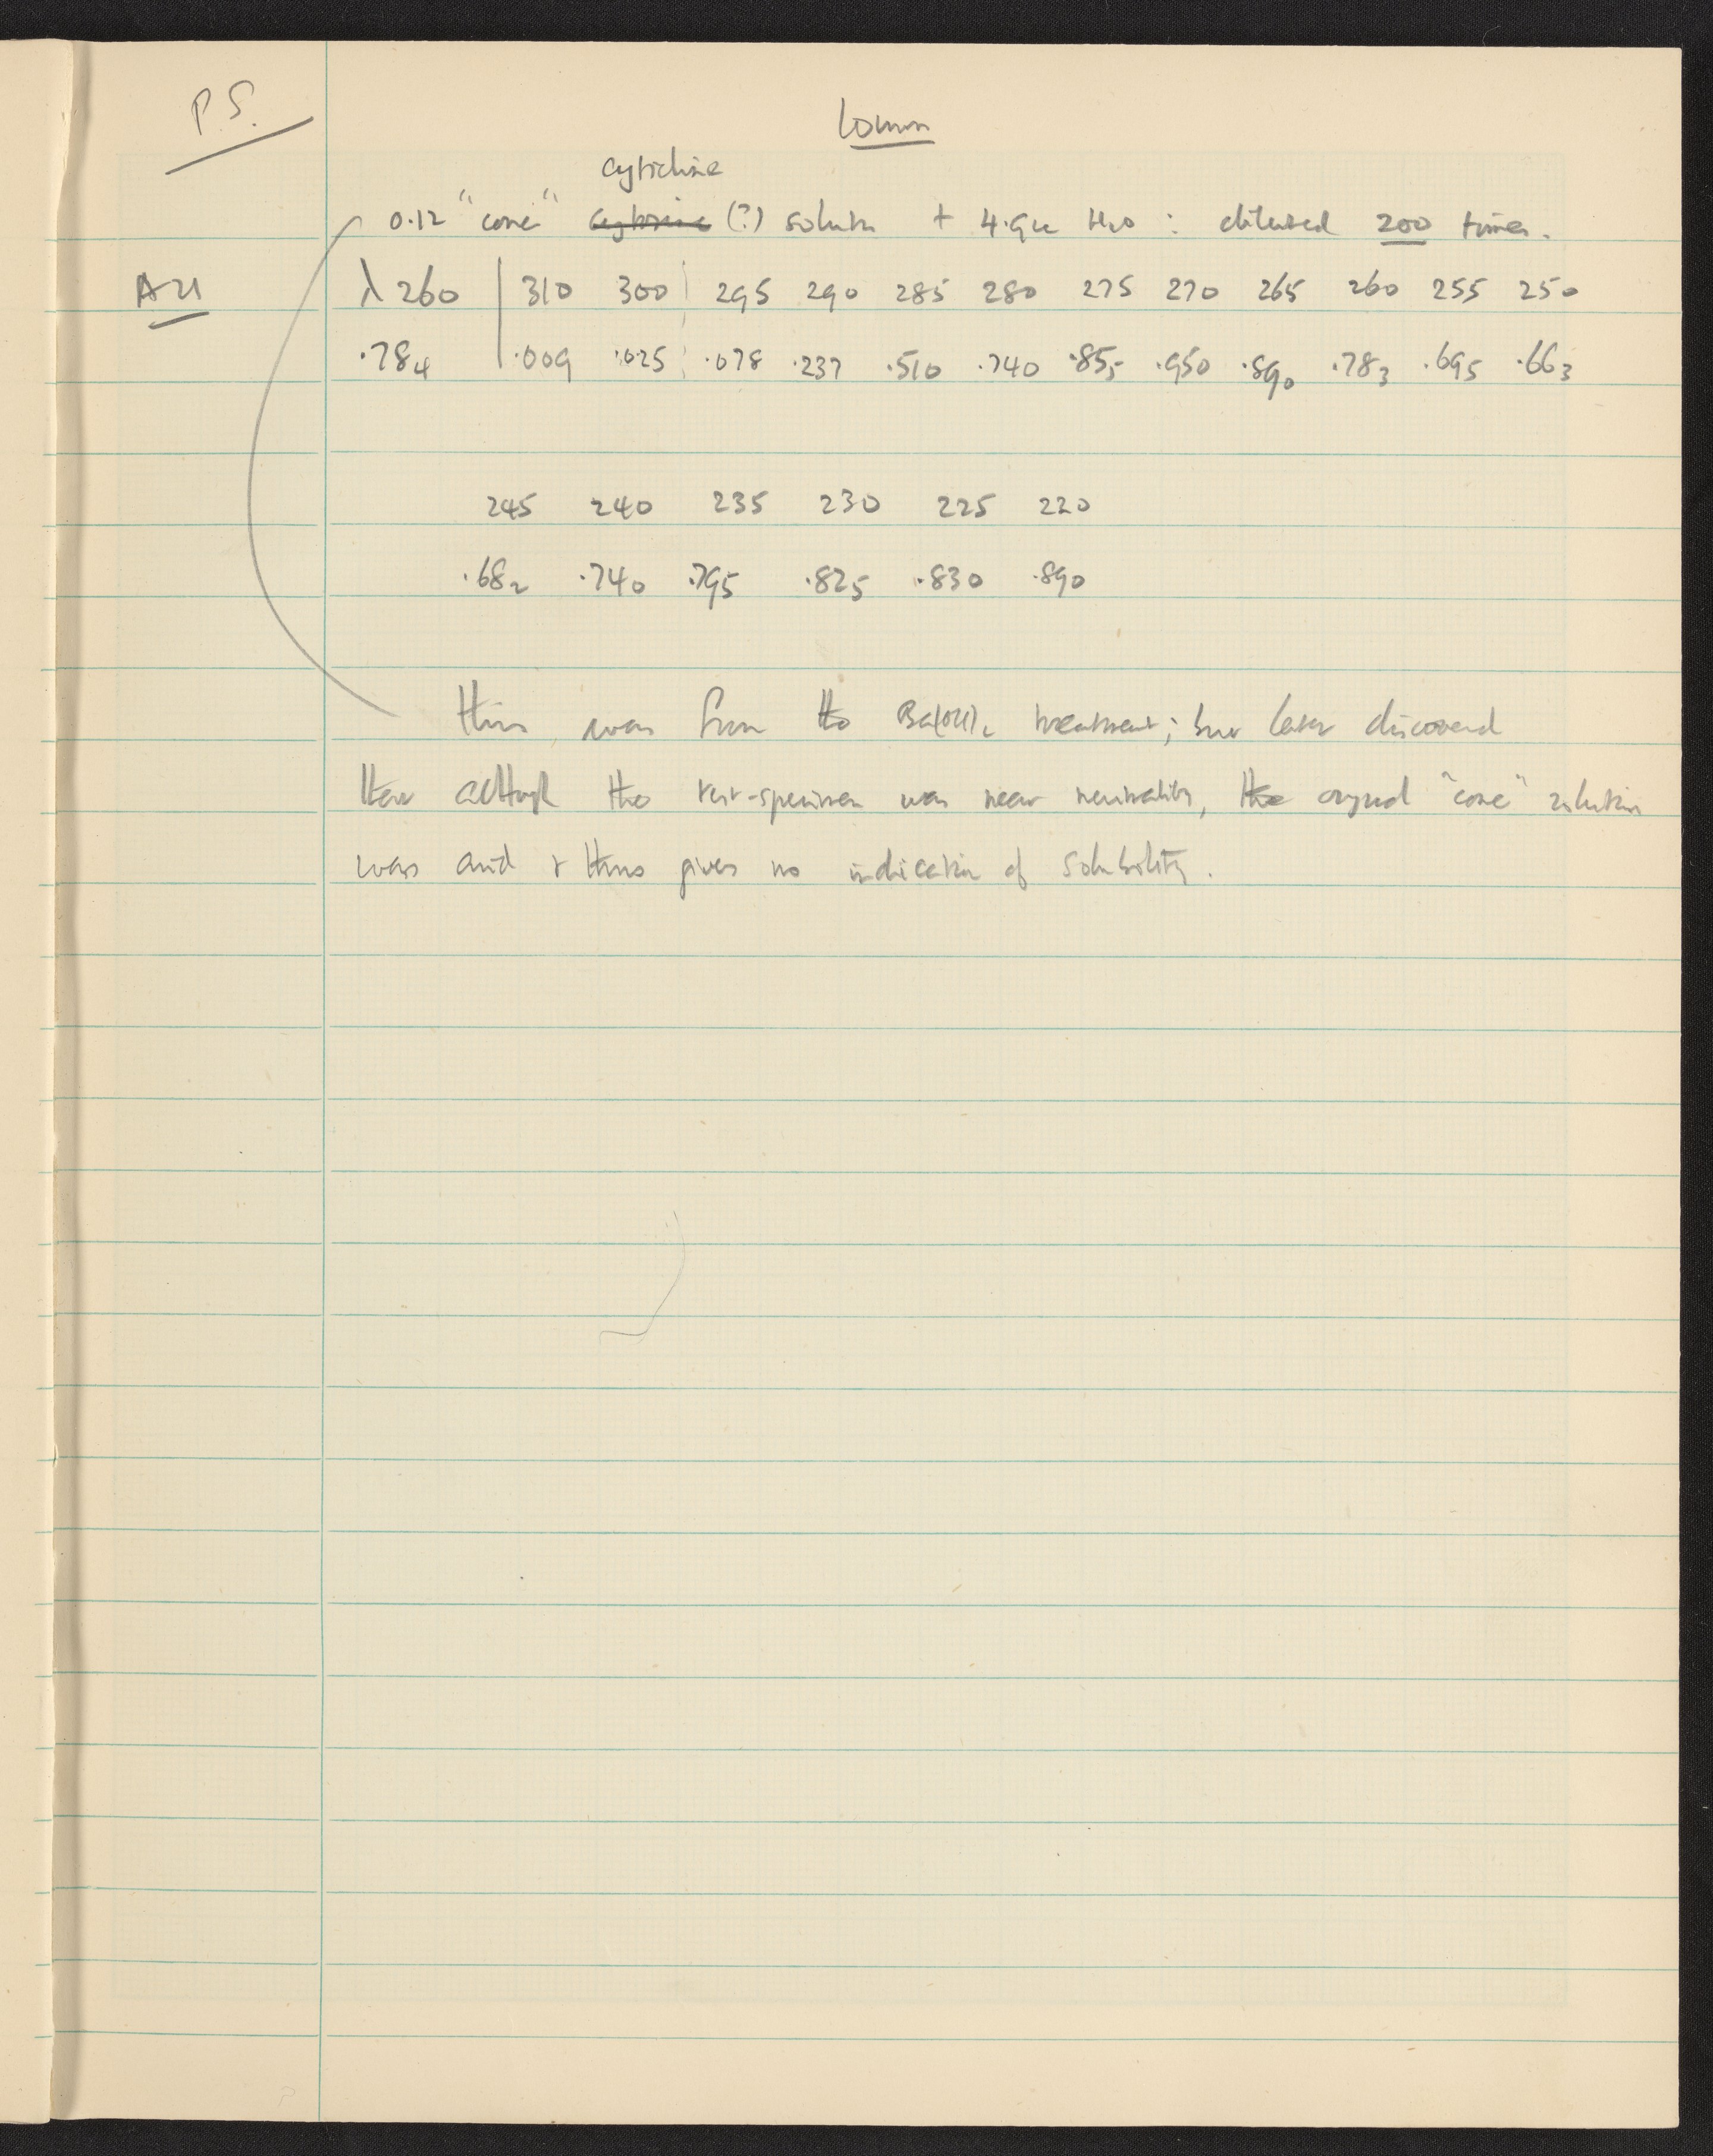 P.S.
10mm
cytidine
0.12 "conc" cytosine (?) solutn + 4.9cc H2O : diluted 200 times.
A21 λ 260 | 310 300 295 290 285 280 275 270 265 260 255 250
.784 | .009 .025 .078 .237 .510 .740 .855 .950 .890 .783 .695 .663
245 240 235 230 225 220
.682 .740 .795 .825 .830 .890
This was from the Ba(OH)2 treatment; but later discovered
that although the test-specimen was near neutrality, the original "conc" solution
was acid & thus gives no indication of solubility.